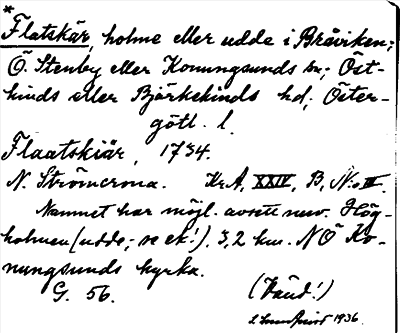 *
Flatskär, holme eller udde i Bråviken;
Ö. Stenby eller Konungsunds sn; Öst-
kinds eller Björkekinds hd; Öster-
götl. l.
Flaatskiär, 1734.
N. Strömcrona. Kr. A, XXIV, B, N:o III.
Namnet har möjl. avsett nuv. Hög-
holmen (udde; se ek!), 3,2 km. NÖ Ko-
nungsunds kyrka.
G. 56. (Vänd!)
1936